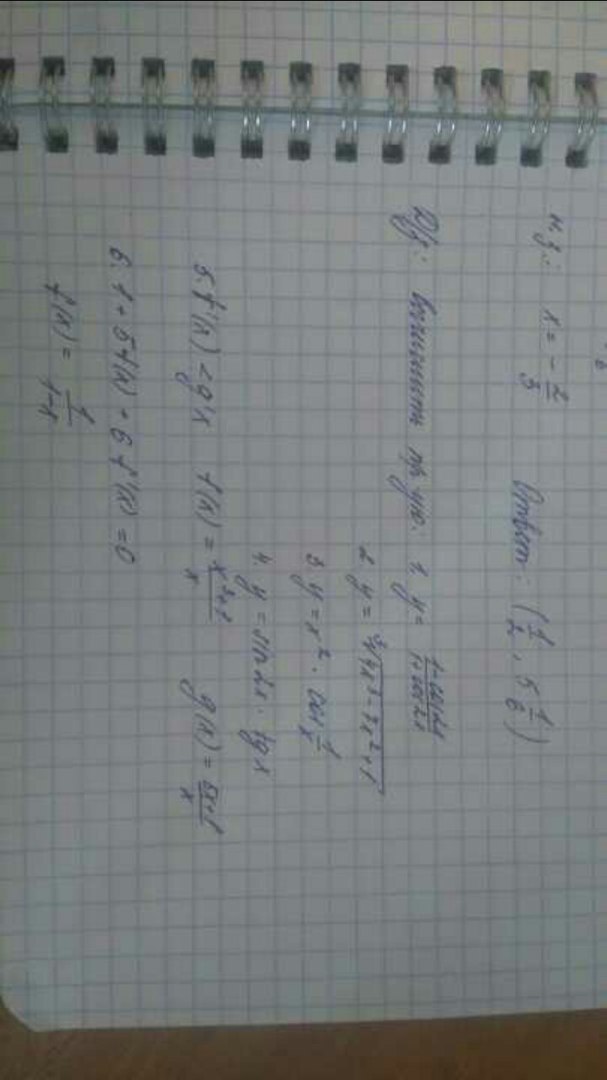 x = - 2/3 Ответ: (1/2, 5 1/6)
Д/з: Вычислить пр-ую: 1. y = (1-cos2x)/(1+cos2x)
2. y = ∛(4x³-7x²+1)
3. y = x² · cos 1/x
4. y = sin2x · tgx
5. f'(x) < g'x f(x) = (x³+1)/x g(x) = (5x+1)/x
6. 1 + 5f(x) + 6f'(x) = 0
f(x) = 1/(1-x)